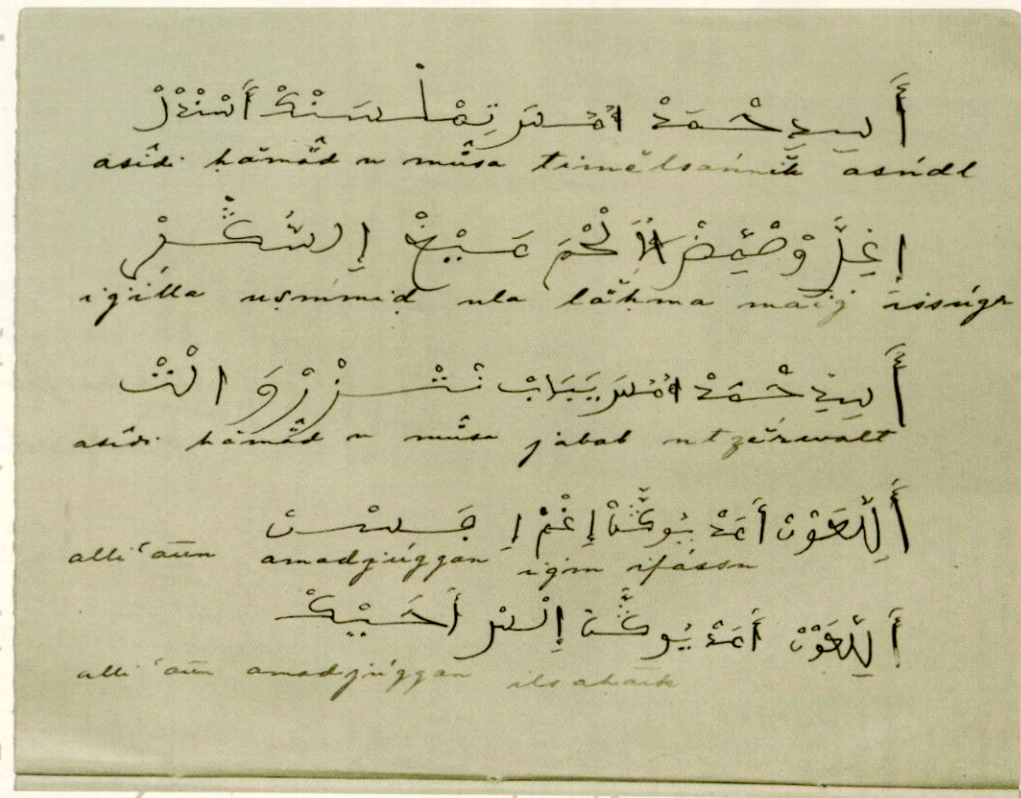 أَسِيدِ حْمَدْ اُمُسَ تِمْلْسَنْكْ أَسْنْدْلْ
asîdi ḥămăd u mûsa timĕlsannik asńdl
إِغِلَّ وُصْمِّضْ اُلَا لْحْمَ مَيْغْ إِسُّكْرْ
igílla uṣmmiḍ ula lăḥma maīġ issúgr
أَسِيدِ حْمَدْ اُمُسَ يَبَابْ نْتْزْرْوَالْتْ
asîdi ḥămăd u mûsa jabab ntzĕrwalt
أَلِّلعَوْنْ أَمَدْ يُوكَّنْ إِغْمْ إِفَسْنْ
alliʿaūn amadjúggan igm ifássn
أَلِّلعَوْنْ أَمَدْ يُوكَّنْ إِلْسْ أَهَيْكْ
alliʿaūn amadjúggan ils ahaīk